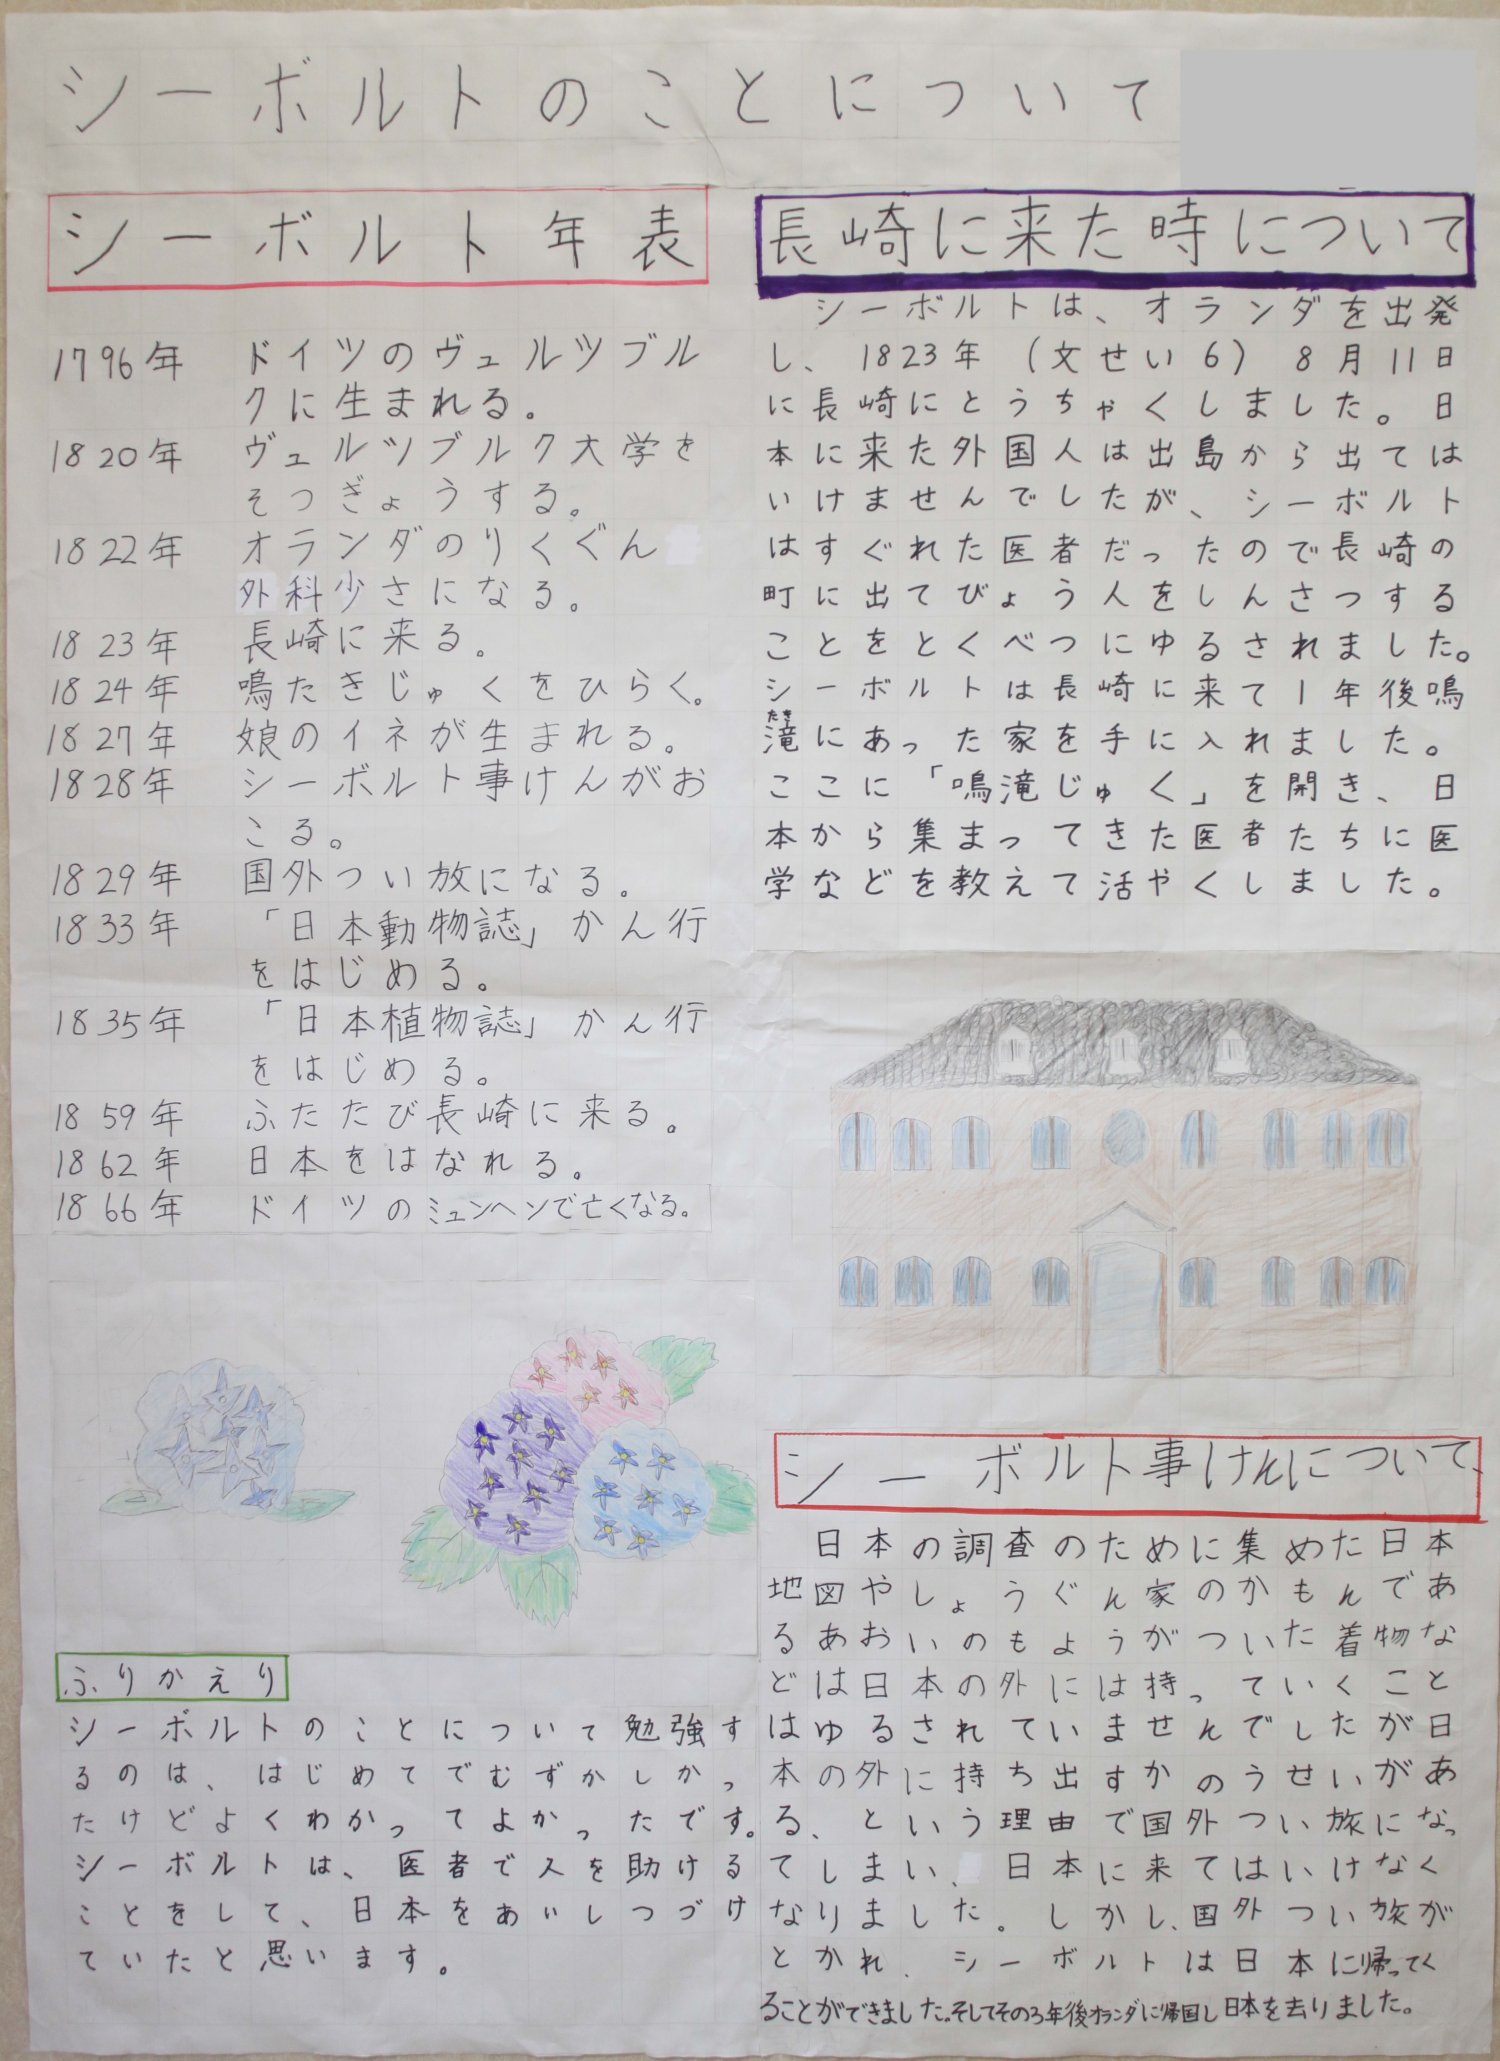 シーボルトのことについて
シーボルト年表
1796年 ドイツのヴュルツブル
クに生まれる。
1820年 ヴュルツブルク大学を
そつぎょうする。
1822年 オランダのりくぐん
外科少さになる。
1823年 長崎に来る。
1824年 鳴たきじゅくをひらく。
1827年 娘のイネが生まれる。
1828年 シーボルト事けんがお
こる。
1829年 国外つい放になる。
1833年 「日本動物誌」かん行
をはじめる。
1835年 「日本植物誌」かん行
をはじめる。
1859年 ふたたび長崎に来る。
1862年 日本をはなれる。
1866年 ドイツのミュンヘンで亡くなる。
ふりかえり
シーボルトのことについて勉強す
るのは、はじめてでむずかしかっ
たけどよくわかってよかったです。
シーボルトは、医者で人を助ける
ことをして、日本をあいしつづけ
ていたと思います。
長崎に来た時について
シーボルトは、オランダを出発
し、1823年(文せい6)8月11日
に長崎にとうちゃくしました。日
本に来た外国人は出島から出ては
いけませんでしたが、シーボルト
はすぐれた医者だったので長崎の
町に出てびょう人をしんさつする
ことをとくべつにゆるされました。
シーボルトは長崎に来て1年後鳴
たき
滝にあった家を手に入れました。
ここに「鳴滝じゅく」を開き、日
本から集まってきた医者たちに医
学などを教えて活やくしました。
シーボルト事けんについて、
日本の調査のために集めた日本
地図やしょうぐん家のかもんであ
るあおいのもようがついた着物な
どは日本の外には持っていくこと
はゆるされていませんでしたが日
本の外に持ち出すかのうせいがあ
る、という理由で国外つい旅になっ
てしまい、日本に来てはいけなく
なりました。しかし、国外つい旅が
とかれ、シーボルトは日本に帰ってく
ることができました。そしてその3年後オランダに帰国し日本を去りました。